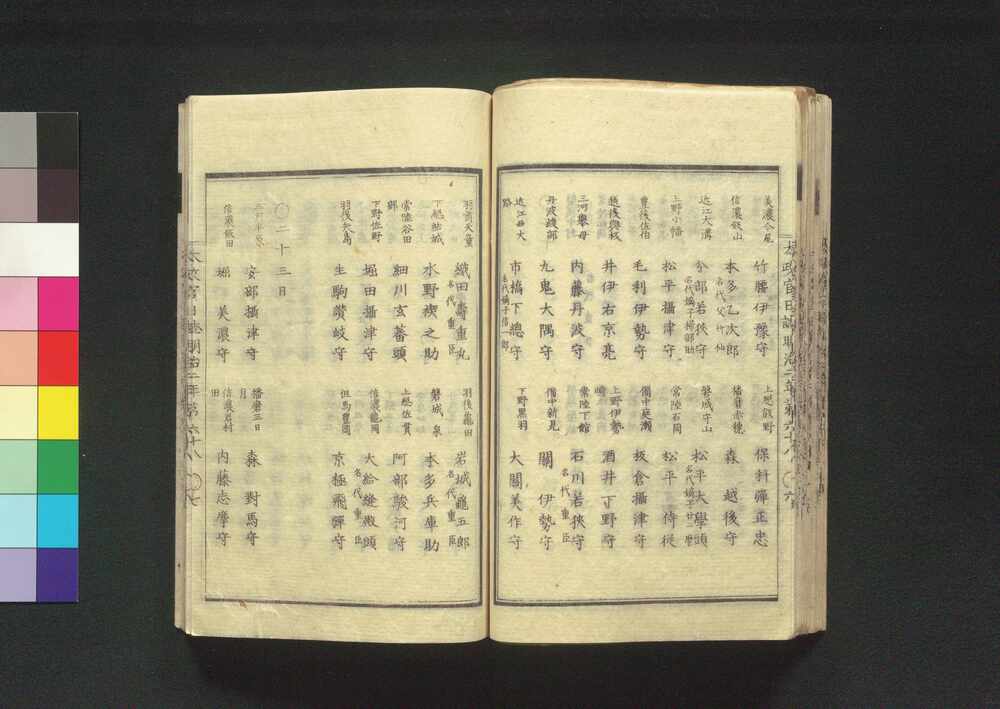 美濃今尾 竹腰伊豫守 上總飯野 保科彈正忠
信濃飯山 本多乙次郎 名代父竹仙 播磨赤穗 森 越後守
近江大溝 分部若狹守 磐城守山 松平大學頭
上野小幡 松平攝津守 常陸石岡 松平 侍從
豊後佐伯 毛利伊勢守 備中庭瀬 板倉攝津守
越後與板 井伊右京亮 上野伊勢崎 酒井下野守
三河擧母 内藤丹波守 常陸下館 石川若狹守 名代重臣
丹波綾部 九鬼大隅守 備中新見 關 伊勢守
近江西大路 市橋下總守 下野黒羽 大關美作守
太政官日誌明治二年第六十八 〇六
羽前天童 織田壽重丸 名代重臣 羽後龜田 岩城龜五郎 名代重臣
下總結城 水野禊之助 磐城泉 本多兵庫助
常陸谷田部 細川玄蕃頭 上總佐貫 阿部駿河守
下野佐野 堀田攝津守 信濃龍岡 大給縫殿頭 名代重臣
羽後矢島 生駒讃岐守 但馬豐岡 京極飛彈守
〇二十三日
三河半原 安部攝津守 播磨三日月 森 對馬守
信濃飯田 堀 美濃守 信濃岩村田 内藤志摩守
太政官日誌明治二年第六十八 〇七